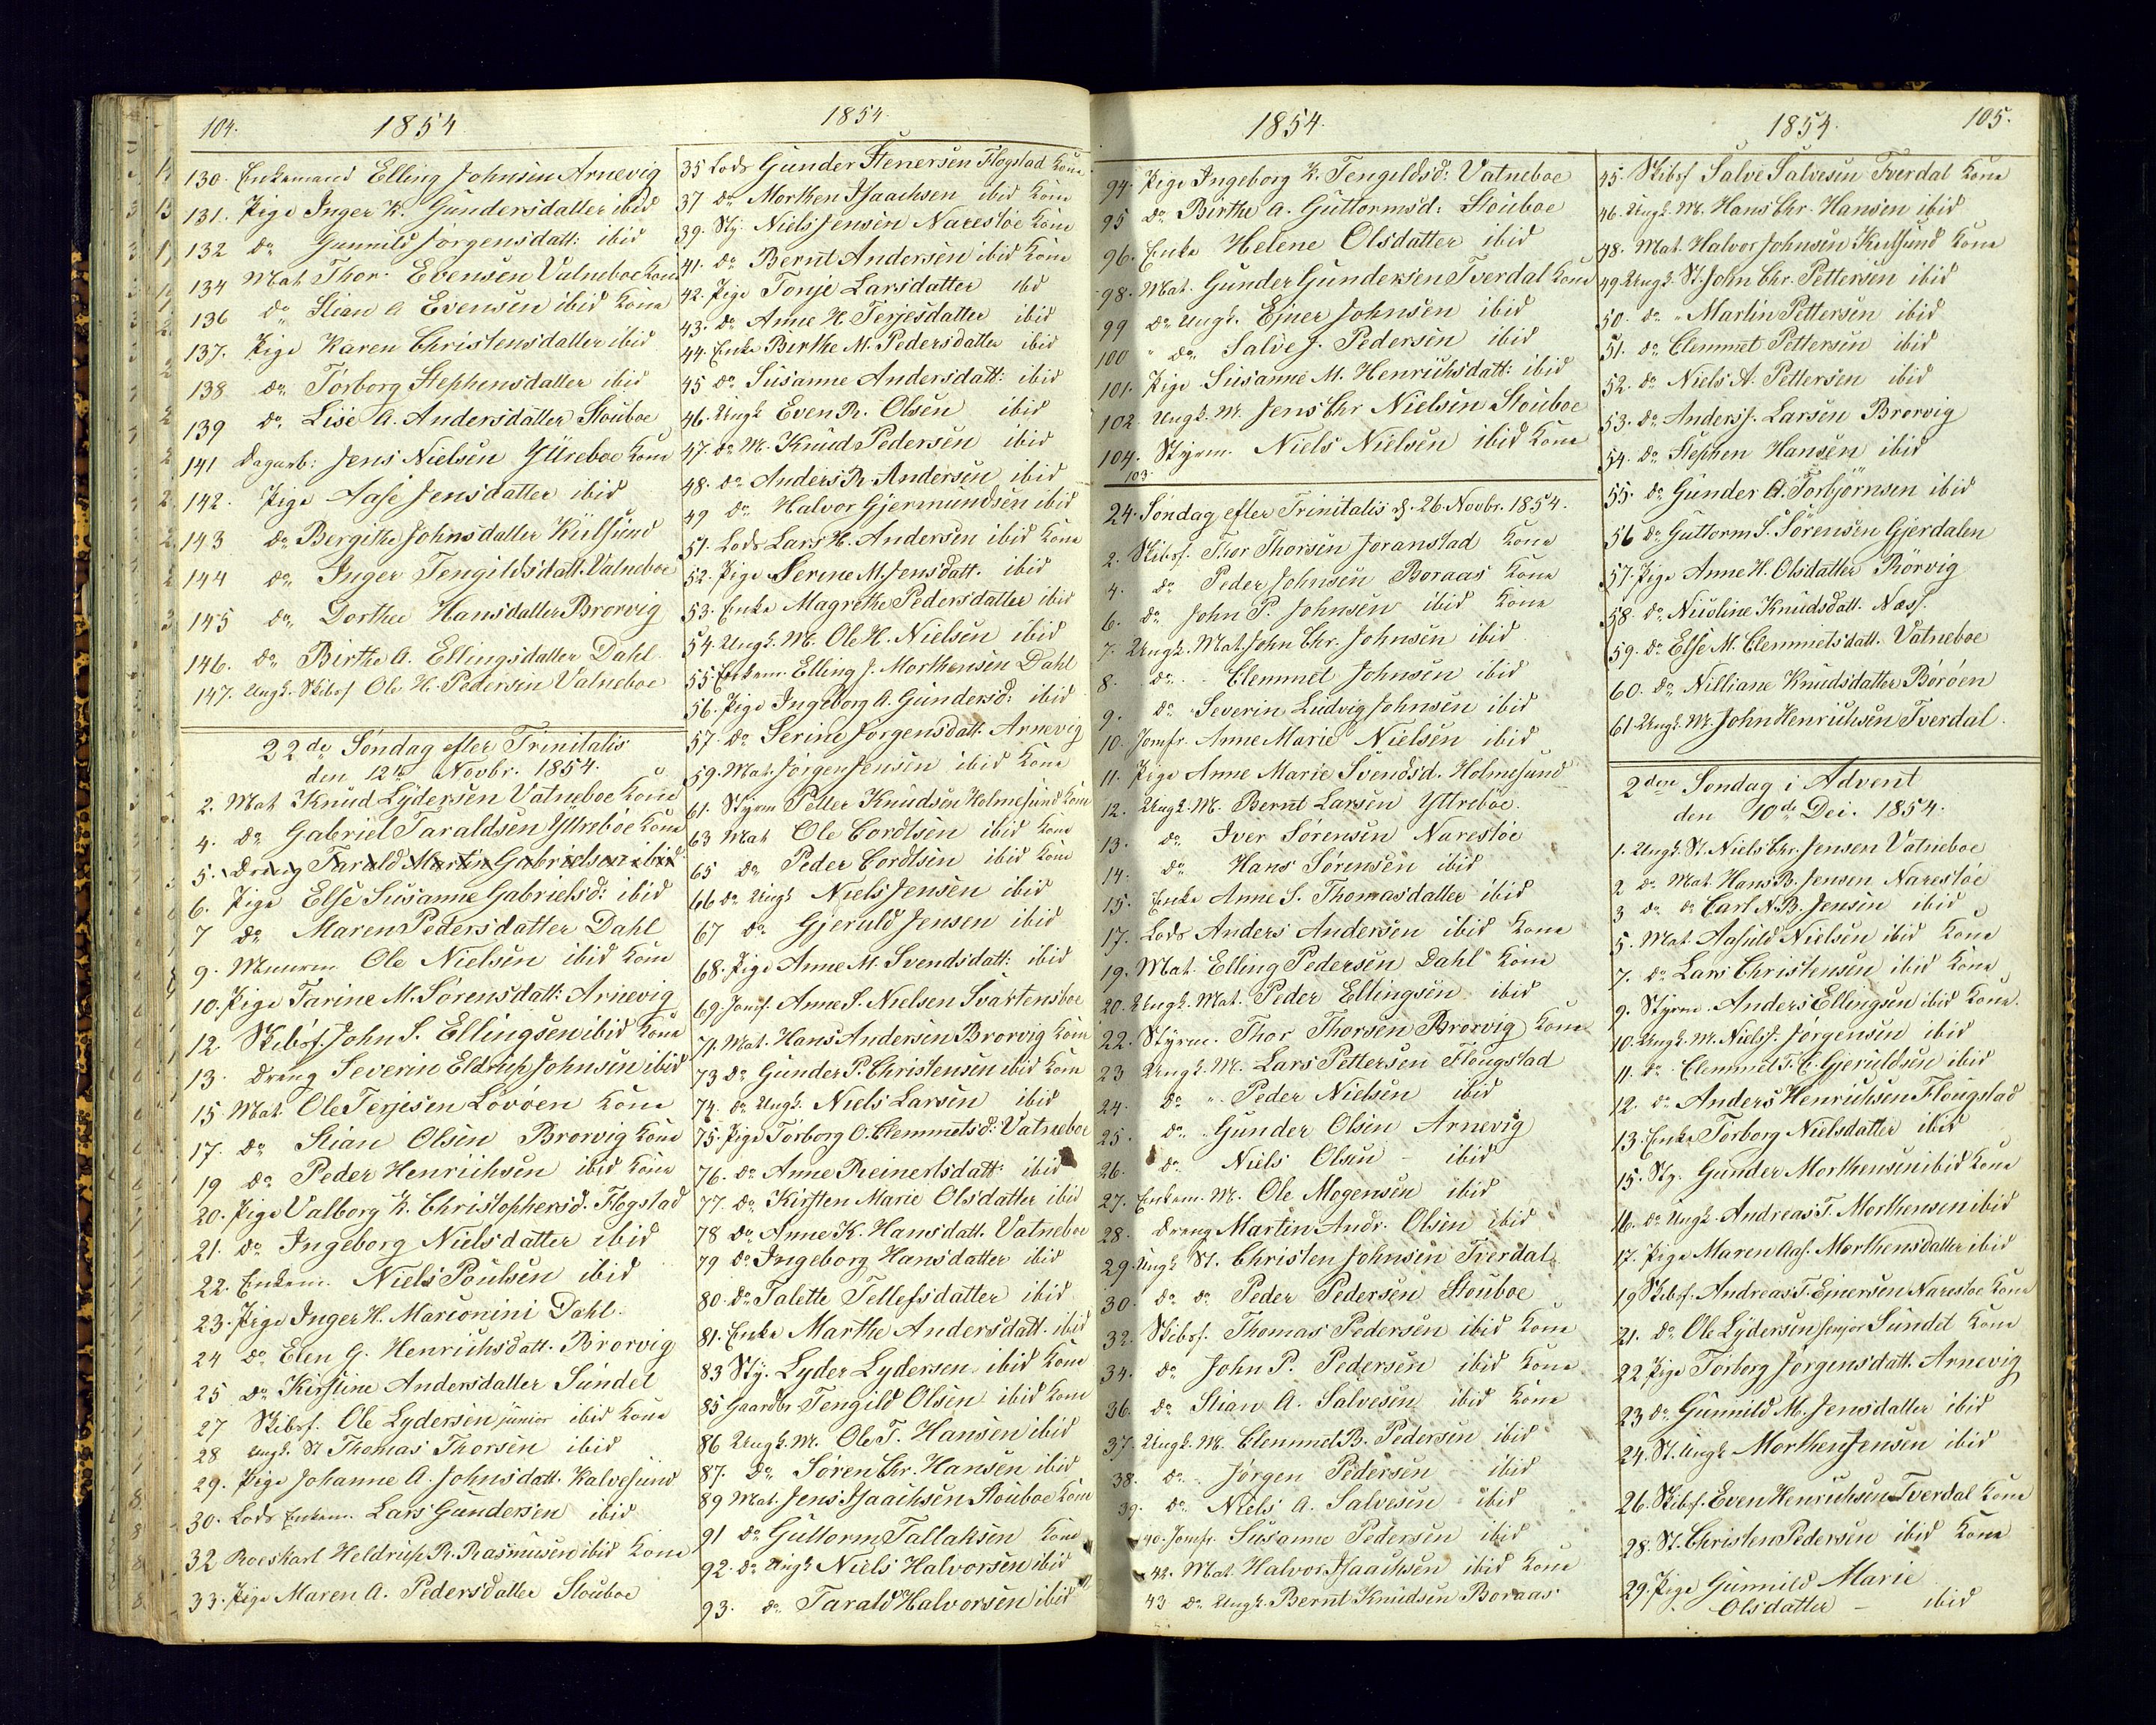 104.
1854
130. Enkemand Elling Johnsen Arnevig
131. Pige Inger K. Gundersdatter ibid
132 do Gunnild Jørgensdatt: ibid
134 Mat Thor Evensen Vatneboe Kone
136 do Stian A Evensen ibid Kone
137. Pige Karen Christensdatter ibid
138 do Torborg Stephensdatter ibid
139 do Lise A. Andersdatter Stouboe
141 Dagarb: Jens Nielsen Yttreboe Kone
142. Pige Aase Jensdatter ibid
143 do Bergithe Johnsdatter
144 do Inger Tengildsdatt. Vatneboe
145 do Dorthee Hansdatter Brorvig
146. do Birthe A. Ellingsdatter Dahl.
147. Ungk. Skibsf Ole H. Pedersen Vatneboe
22de Søndag efter Trinitatis
den 12te Novbr. 1854.
2. Mat Knud Lydersen Vatneboe Kone
4. do Gabriel Taraldsen Yttreboe Kone
5. Dreng Tarald Martin Gabrielsen ibid
6. Pige Else Susanne Gabrielsd: ibid
7 do Maren Pedersdatter Dahl
9. Muurm. Ole Nielsen ibid Kone
10. Pige Tarine M. Sørensdatt: Arnevig
12. Skibsf. John S. Ellingsen ibid Kone
13. Dreng Severin Eldrup Johnsen ibid
15 Mat Ole Terjesen Løvøen Kone
17. do Stian Olsen Brorvig Kone
19 do Peder Henrichsen ibid Kone
20. Pige Valborg K. Christophersd. Flogstad
21. do Ingeborg Nielsdatter ibid
22. Enkem. Niels Poulsen ibid
23. Pige Inger H. Marconini Dahl.
24 do Elen G. Henrichsdatt. Brorvig
25 do Kirstine Andersdatter Sundet
27 Skibsf. Ole Lydersen junior ibid Kone
28 Ungk. St Thomas Thorsen ibid
29. Pige Johanne A. Johnsdatt. Kalvesund
30. Lods Enkem. Lars Gundersen ibid
32 Roeskarl Heldrup R. Rasmusen ibid Kone
33. Pige Maren A. Pedersdatter Stouboe
1854
35 Lods Gunder Stenersen Flogstad Kone
37 do Morthen Isaachsen ibid Kone
39. Sty. Niels Jensen Narestøe Kone
41. do Bernt Andersen ibid Kone
42. Pige Tonje Larsdatter ibd
43. do Anne H. Terjesdatter ibid
44. Enke Birthe M. Pedersdatter ibid
45 do Susanne Andersdatt: ibid
46. Ungk Even R. Olsen ibid
47. do M. Knud Pedersen ibid
48. do Anders R. Andersen ibid
49 do Halvor Gjermundsen ibid
51. Lods Lars H. Andersen ibid Kone
52. Pige Serine M. Jensdatt. ibid
53. Enke Magrethe Pedersdatter ibid
54. Ungk. M. Ole H. Nielsen ibid
55 Enkem: Elling J. Morthensen Dahl
56. Pige Ingeborg A. Gundersd: ibid
57. do Serine Jørgensdatt. Arnevig
59. Mat. Jørgen Jensen ibid Kone
61. Styrm Petter Knudsen Holmesund Kone
63 Mat Ole Cordtsen ibid Kone
65 do Peder Cordtsen ibid Kone
66 do Ungk Niels Jensen ibid
67 do Gjeruld Jensen ibid
68. Pige Anne M. Svendsdatt: ibid
69. Jomf. Anne S. Nielsen Svartensboe
71. Mat. Hans Andersen Brorvig Kone
73 do Gunder P. Christensen ibid Kone
74. do Ungk. Niels Larsen ibid
75. Pige Torborg O. Clemmetsd: Vatneboe
76. do Anne Reinertsdatt: ibid
77. do Kirsten Marie Olsdatter ibid
78 do Anne K. Hansdatt. Vatneboe
79 do Ingeborg Hansdatter ibid
80. do Talette Tellefsdatter ibid
81. Enke Marthe Andersdatt. ibid
83 Sty. Lyder Lydersen ibid Kone
85 Gaardbr Tengild Olsen ibid Kone
86 Ungk. M. Ole T. Hansen ibid
87. do Søren Chr. Hansen ibid
89 Mat. Jens Isaachsen Stouboe Kone
91 do Guttorm Tallaksen Kone
92. do Ungk Niels Halvorsen ibid
93. do Tarald Halvorsen ibid
1854.
94. Pige Ingeborg K. Tengildsd: Vatneboe
95 do Birthe A. Guttormsd: Stouboe
96. Enke Helene Olsdatter ibid
98. Mat. Gunder Gundersen Tverdal Kone
99 do Ungk. Ejner Johnsen ibid
100 " do Salve J. Pedersen ibid
101. Pige Susanne M. Henrichsdatt: ibid
102. Ungk. M. Jens Chr Nielsen Stouboe
104. Styrm. Niels Nielsen ibid Kone
103.
24. Søndag efter Trinitatis d. 26. Novbr. 1854.
2. Skibsf. Thor Thorsen Joranstad Kone
4. do Peder Johnsen Boraas Kone
6. do John P. Johnsen ibid Kone
7. Ungk. Mat. John Chr. Johnsen ibid
8. do Clemmet Johnsen ibid
9. do Severin Ludvig Johnsen ibid
10. Jomfr. Anne Marie Nielsen ibid
11. Pige Anne Marie Svendsd. Holmesund
12. Ungk. M. Bernt Larsen Yttreboe.
13. do Iver Sørensen Narestøe
14. do Hans Sørensen ibid
15. Enke Anne S. Thomasdatter ibid
17. Lods Anders Andersen ibid Kone
19. Mat. Elling Pedersen Dahl Kone
20. Ungk. Mat. Peder Ellingsen ibid
22. Styrm. Thor Thorsen Brorvig Kone
23 Ungk. M. Lars Pettersen Flougstad
24. do " Peder Nielsen ibid
25. do Gunder Olsen Arnevig
26. do Niels Olsen - ibid
27. Enkem. M. Ole Mogensen ibid
28. Dreng Martin Andr. Olsen ibid
29. Ungk St. Christen Johnsen Tverdal
30. do do Peder Pedersen Stouboe
32. Skibsf. Thomas Pedersen ibid Kone
34. do John P. Pedersen ibid Kone
36. do Stian A. Salvesen ibid Kone
37. Ungk. M. Clemmet B. Pedersen ibid
38. do Jørgen Pedersen ibid
39. do Niels A. Salvesen ibid
40. Jomfr. Susanne Pedersen ibid
42. Mat. Halvor Isaachsen ibid Kone
43 do Ungk. Bernt Knudsen Boraas
1854.
105.
45. Skibsf Salve Salvesen Tverdal Kone
46. Ungk. M. Hans Chr. Hansen ibid
48. Mat. Halvor Johnsen Kone
49 Ungk. St. John Chr. Pettersen ibid
50. do " Martin Pettersen ibid
51. do Clemmet Pettersen ibid
52. do Niels A. Pettersen ibid
53. do Anders J. Larsen Brorvig
54. do Stephen Hansen ibid
55. do Gunder A. Torbjørnsen ibid
56 do Guttorm S. Sørensen Gjerdalen
57. Pige Anne H. Olsdatter Rørvig
58. do Nicoline Knudsdatt. Næss.
59. do Else M. Clemmetsdatt. Vatneboe
60. do Nilliane Knudsdatter Børøen
61 Ungk. M. John Henrichsen Tverdal.
2den Søndag i Advent
den 10de Dei. 1854.
1. Ungk. St. Niels Chr. Jensen Vatneboe
2 do Mat. Hans B. Jensen Narestøe
3 do do Carl N. B. Jensen ibid
5. Mat. Aasuld Nielsen ibid Kone
7. do Lars Christensen ibid Kone
9. Styrm. Anders Ellingsen ibid Kone.
10. Ungk. M. Niels J. Jørgensen ibid
11. do Clemmet T. C. Gjeruldsen ibid
12. do Anders Henrichsen Flougstad
13. Enke Torborg Nielsdatter ibid
15. Sty. Gunder Morthensen ibid Kone
16. do Ungk. Andreas T. Morthensen ibid
17. Pige Maren Aas. Morthensdatter ibid
19 Skibsf. Andreas T. Ejnersen Narestøe Kone
21. do Ole Lydersen senjor Sundet Kone
22 Pige Torborg Jørgensdatt. Arnevig
23 do Gunnild M. Jensdatter ibid
24. St. Ungk Morthen Jensen ibid
26. Skibsf. Even Henrichsen Tverdal Kone
28. St. Christen Pedersen ibid Kone
29. Pige Gunnild Marie
Olsdatter - ibid